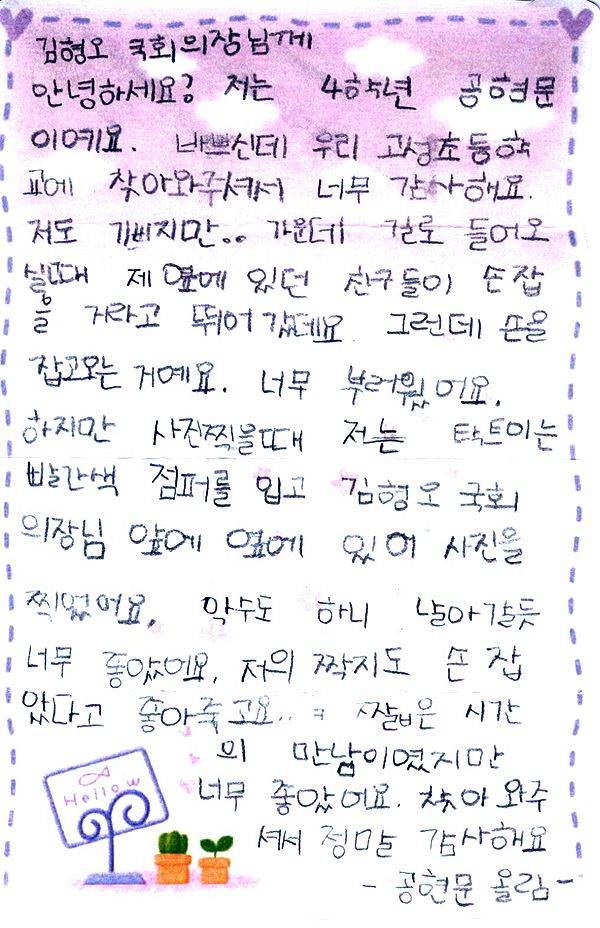 김형오 국회의장님께
안녕하세요? 저는 4학년 공현문
이예요. 바쁘신데 우리 고성초등학
교에 찾아와주셔서 너무 감사해요.
저도 기쁘지만.. 가운데 길로 들어오
실때 제 옆에 있던 친구들이 손잡
을 거라고 뛰어 갔는데요 그런데 손을
잡고오는 거예요. 너무 부러웠어요.
하지만 사진찍을때 저는 탁트이는
빨간색 점퍼를 입고 김형오 국회
의장님 앞에 옆에 있어 사진을
찍었어요. 악수도 하니 날아갈듯
너무 좋았어요. 저의 짝지도 손 잡
았다고 좋아죽고요.. ㅋ 짧은 시간
의 만남이였지만
너무 좋았어요. 찾아 와주
셔서 정말 감사해요
- 공현문 올림 -
Hellow